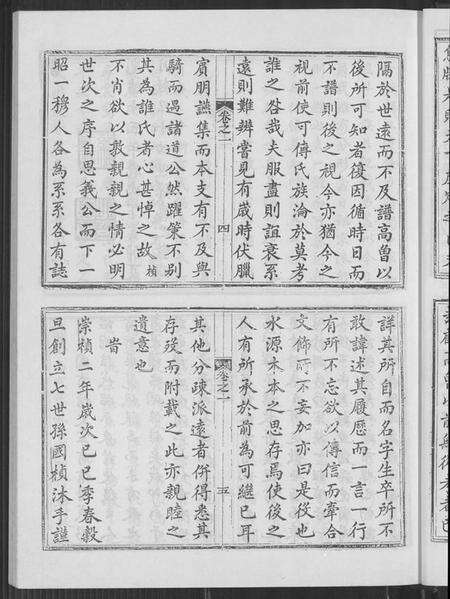 隔於世遠而不及譜高曾以
後所可知者復因循時日而
不譜則後之視今亦猶今之
視前使可傳氏族淪於莫考
誰之咎哉夫服盡則誼衰系
遠則難辨嘗見有歲時伏臘
卷之一
四
賓朋讌集而本支有不及與
騎而過諸道公然躍策不别
其為誰氏者心甚悼之故楨
不肖欲以敦親親之情必明
世次之序自思義公而下一
昭一穆人各為系系各有誌
詳其所自而名字生卒所不
敢諱述其履歷而一言一行
有所不忘欲以傳信而牽合
文飾所不妄加亦曰是役也
水源木本之思存焉使後之
人有所承於前為可繼已耳
卷之一
五
其他分疎派遠者併得悉其
存歿而附載之此亦親睦之
遺意也
旹
崇楨二年歲次己巳季春穀
旦創立七世孫國楨沐手謹